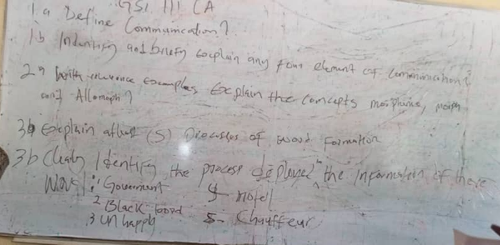 GST 111 CA
1a Define Communication?
1b Indentify and briefly explain any four element of communication?
2a with relevance examples, explain the concepts morpheme, morph
and Allomorph?
3a explain atleast (5) processes of word formation
3b Clearly Identify the process displayed in the information of there
Words: Government 4- motel
2 Black board 5- Chauffeur
3 Unhappy